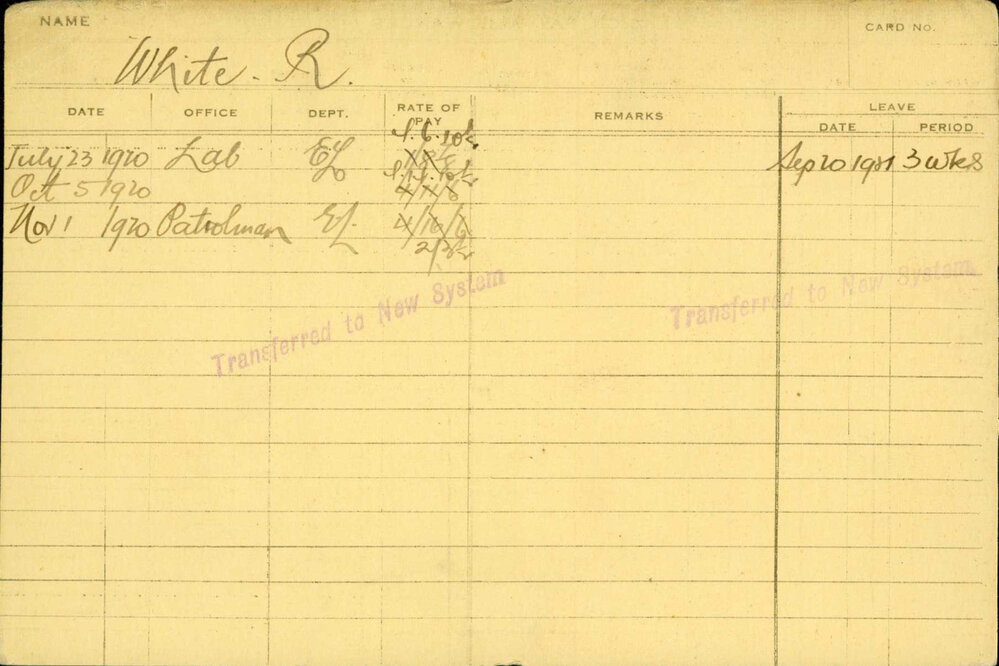 NAME
CARD NO.
White - R.
DATE OFFICE DEPT. RATE OF PAY REMARKS LEAVE
DATE PERIOD
July 23 1920 Lab EL Sep 20 1921 3 wks
Oct 5 1920
Nov 1 1920 Patrolman EL 4/16/6
Transferred to New System
Transferred to New System